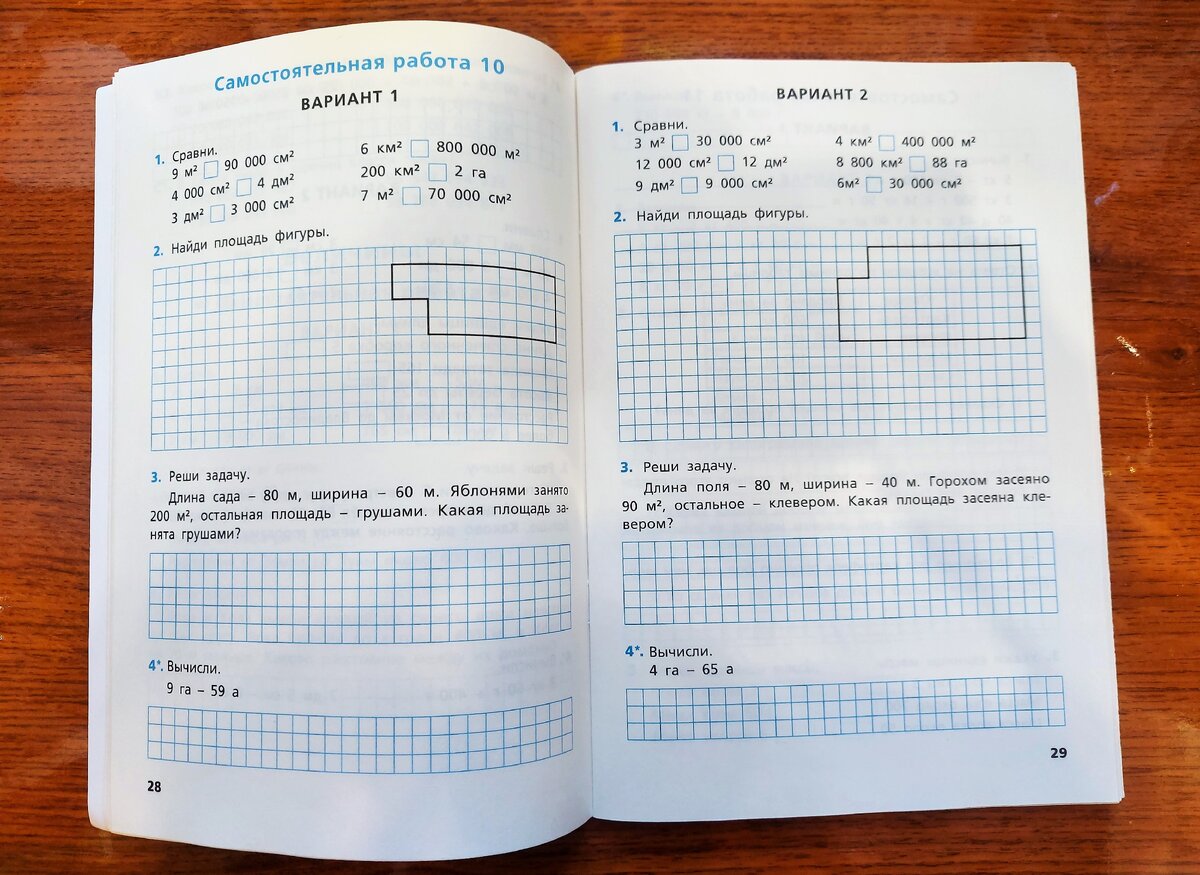 Самостоятельная работа 10
ВАРИАНТ 1
1. Сравни.
9 м² □ 90 000 см²
4 000 см² □ 4 дм²
3 дм² □ 3 000 см²
6 км² □ 800 000 м²
200 км² □ 2 га
7 м² □ 70 000 см²
2. Найди площадь фигуры.
3. Реши задачу.
Длина сада – 80 м, ширина – 60 м. Яблонями занято
200 м², остальная площадь – грушами. Какая площадь за-
нята грушами?
4*. Вычисли.
9 га – 59 а
28
ВАРИАНТ 2
1. Сравни.
3 м² □ 30 000 см²
12 000 см² □ 12 дм²
9 дм² □ 9 000 см²
4 км² □ 400 000 м²
8 800 км² □ 88 га
6м² □ 30 000 см²
2. Найди площадь фигуры.
3. Реши задачу.
Длина поля – 80 м, ширина – 40 м. Горохом засеяно
90 м², остальное – клевером. Какая площадь засеяна кле-
вером?
4*. Вычисли.
4 га – 65 а
29